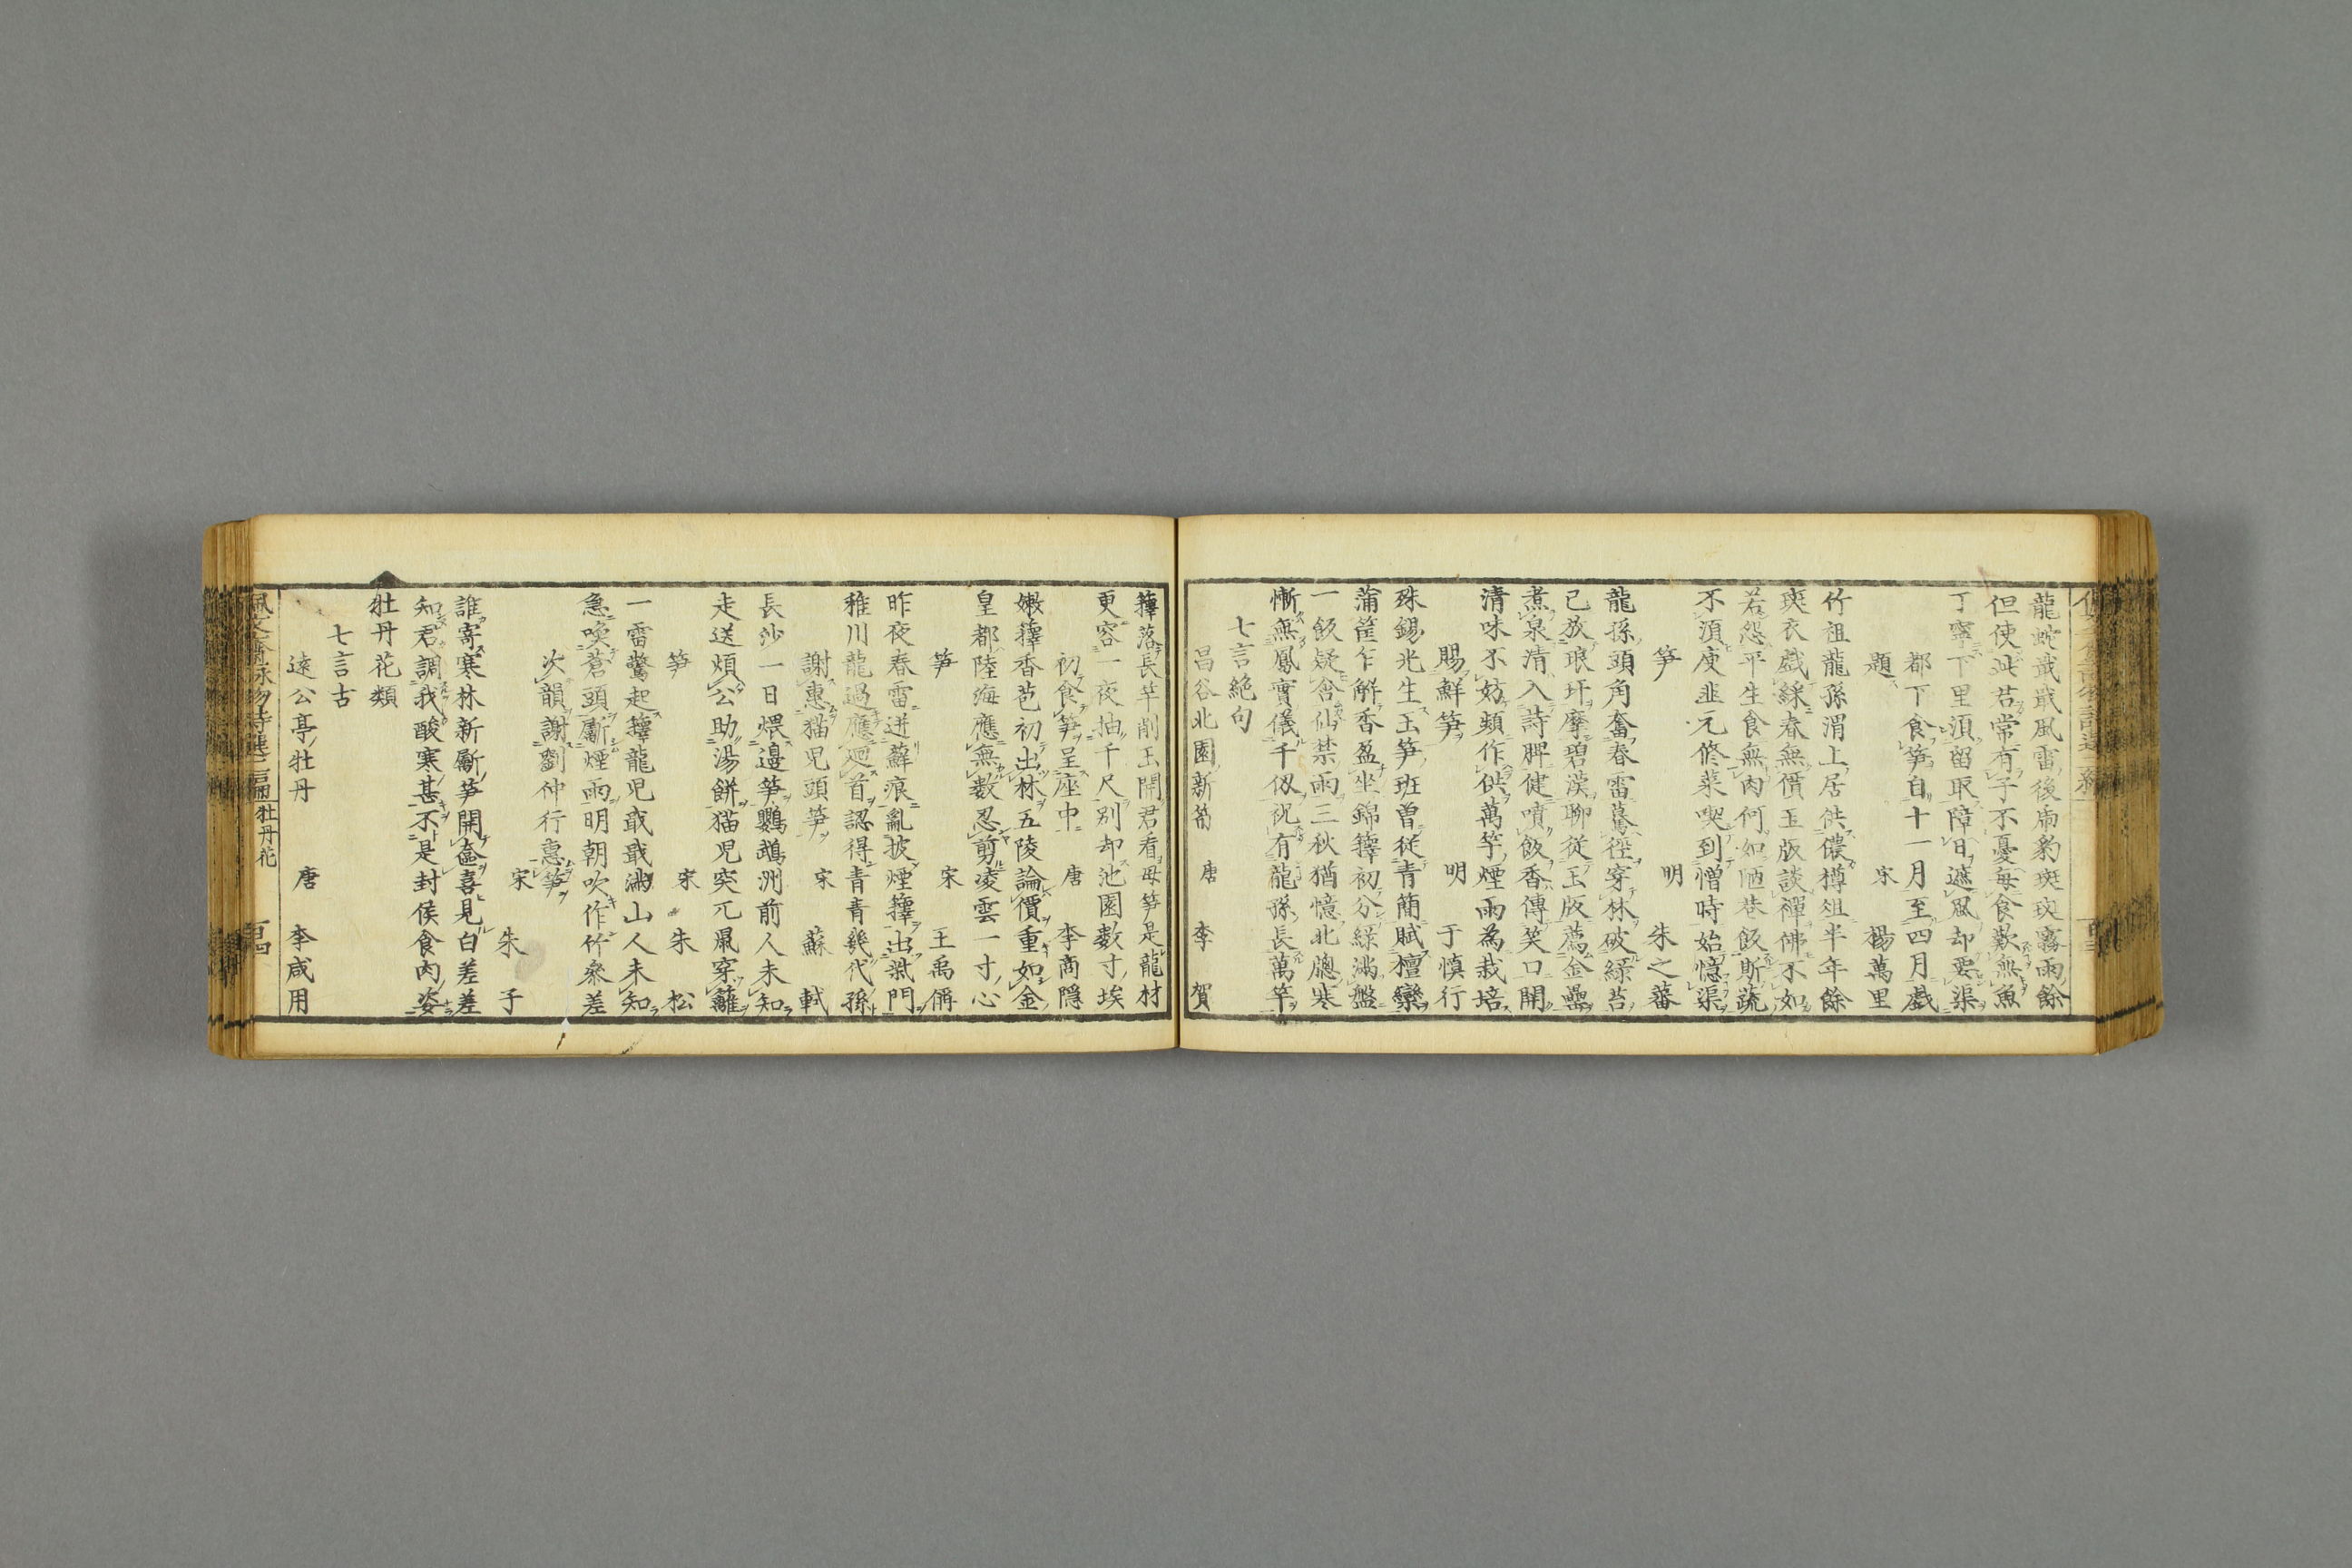 龍蛇戢戢風雷後虎豹斑斑霧雨餘
但使此君常有子不憂毎食歎無魚
丁寧下里須留取障日遮風却要渠
都下食笋自十一月至四月戯
題 宋 楊萬里
竹祖龍孫渭上居供儂樽俎半年餘
斑衣戯綵春無價玉版談禪佛不如
若怨平生食無肉何如陋巷飯斯蔬
不須庾韭元修菜喫到憎時始憶渠
笋 明 朱之蕃
龍孫頭角奮春雷驀徑穿林破緑苔
已放琅玕摩碧漢聊從玉版薦金罍
煮泉清入詩脾健噴飯香傳笑口開
清味不妨頻作供萬竿煙雨為栽培
賜鮮笋 明 于慎行
殊錫光生玉笋班曽従青簡賦檀欒
蒲筐乍解香盈坐錦籜初分緑滿盤
一飯疑含仙禁雨三秋猶憶北牕寒
慚無鳳實儀千仭祝有龍孫長萬竿
七言絶句
昌谷北園新筍 唐 李賀
籜落長竿削玉開君看母笋是龍材
更容一夜抽千尺别却池園數寸埃
初食笋呈座中 唐 李商隠
嫩籜香苞初出林五陵論價重如金
皇都陸海應無數忍剪凌雲一寸心
笋 宋 王禹偁
昨夜春雷迸蘚痕亂披煙籜出柴門
稚川龍過應廻首認得青青幾代孫
謝惠猫兒頭笋 宋 蘇軾
長沙一日煨邉笋鸚鵡洲前人未知
走送煩公助湯餅猫児突兀鼠穿籬
笋 宋 朱松
一雷驚起籜龍児戢戢満山人未知
急喚蒼頭斸煙雨明朝吹作竹參差
次韻謝劉仲行惠笋
宋 朱子
誰寄寒林新斸笋開奩喜見白差差
知君調我酸寒甚不是封侯食肉姿
牡丹花類
七言古
遠公亭牡丹 唐 李咸用
佩文齋詠物詩選二編 牡丹花 百四